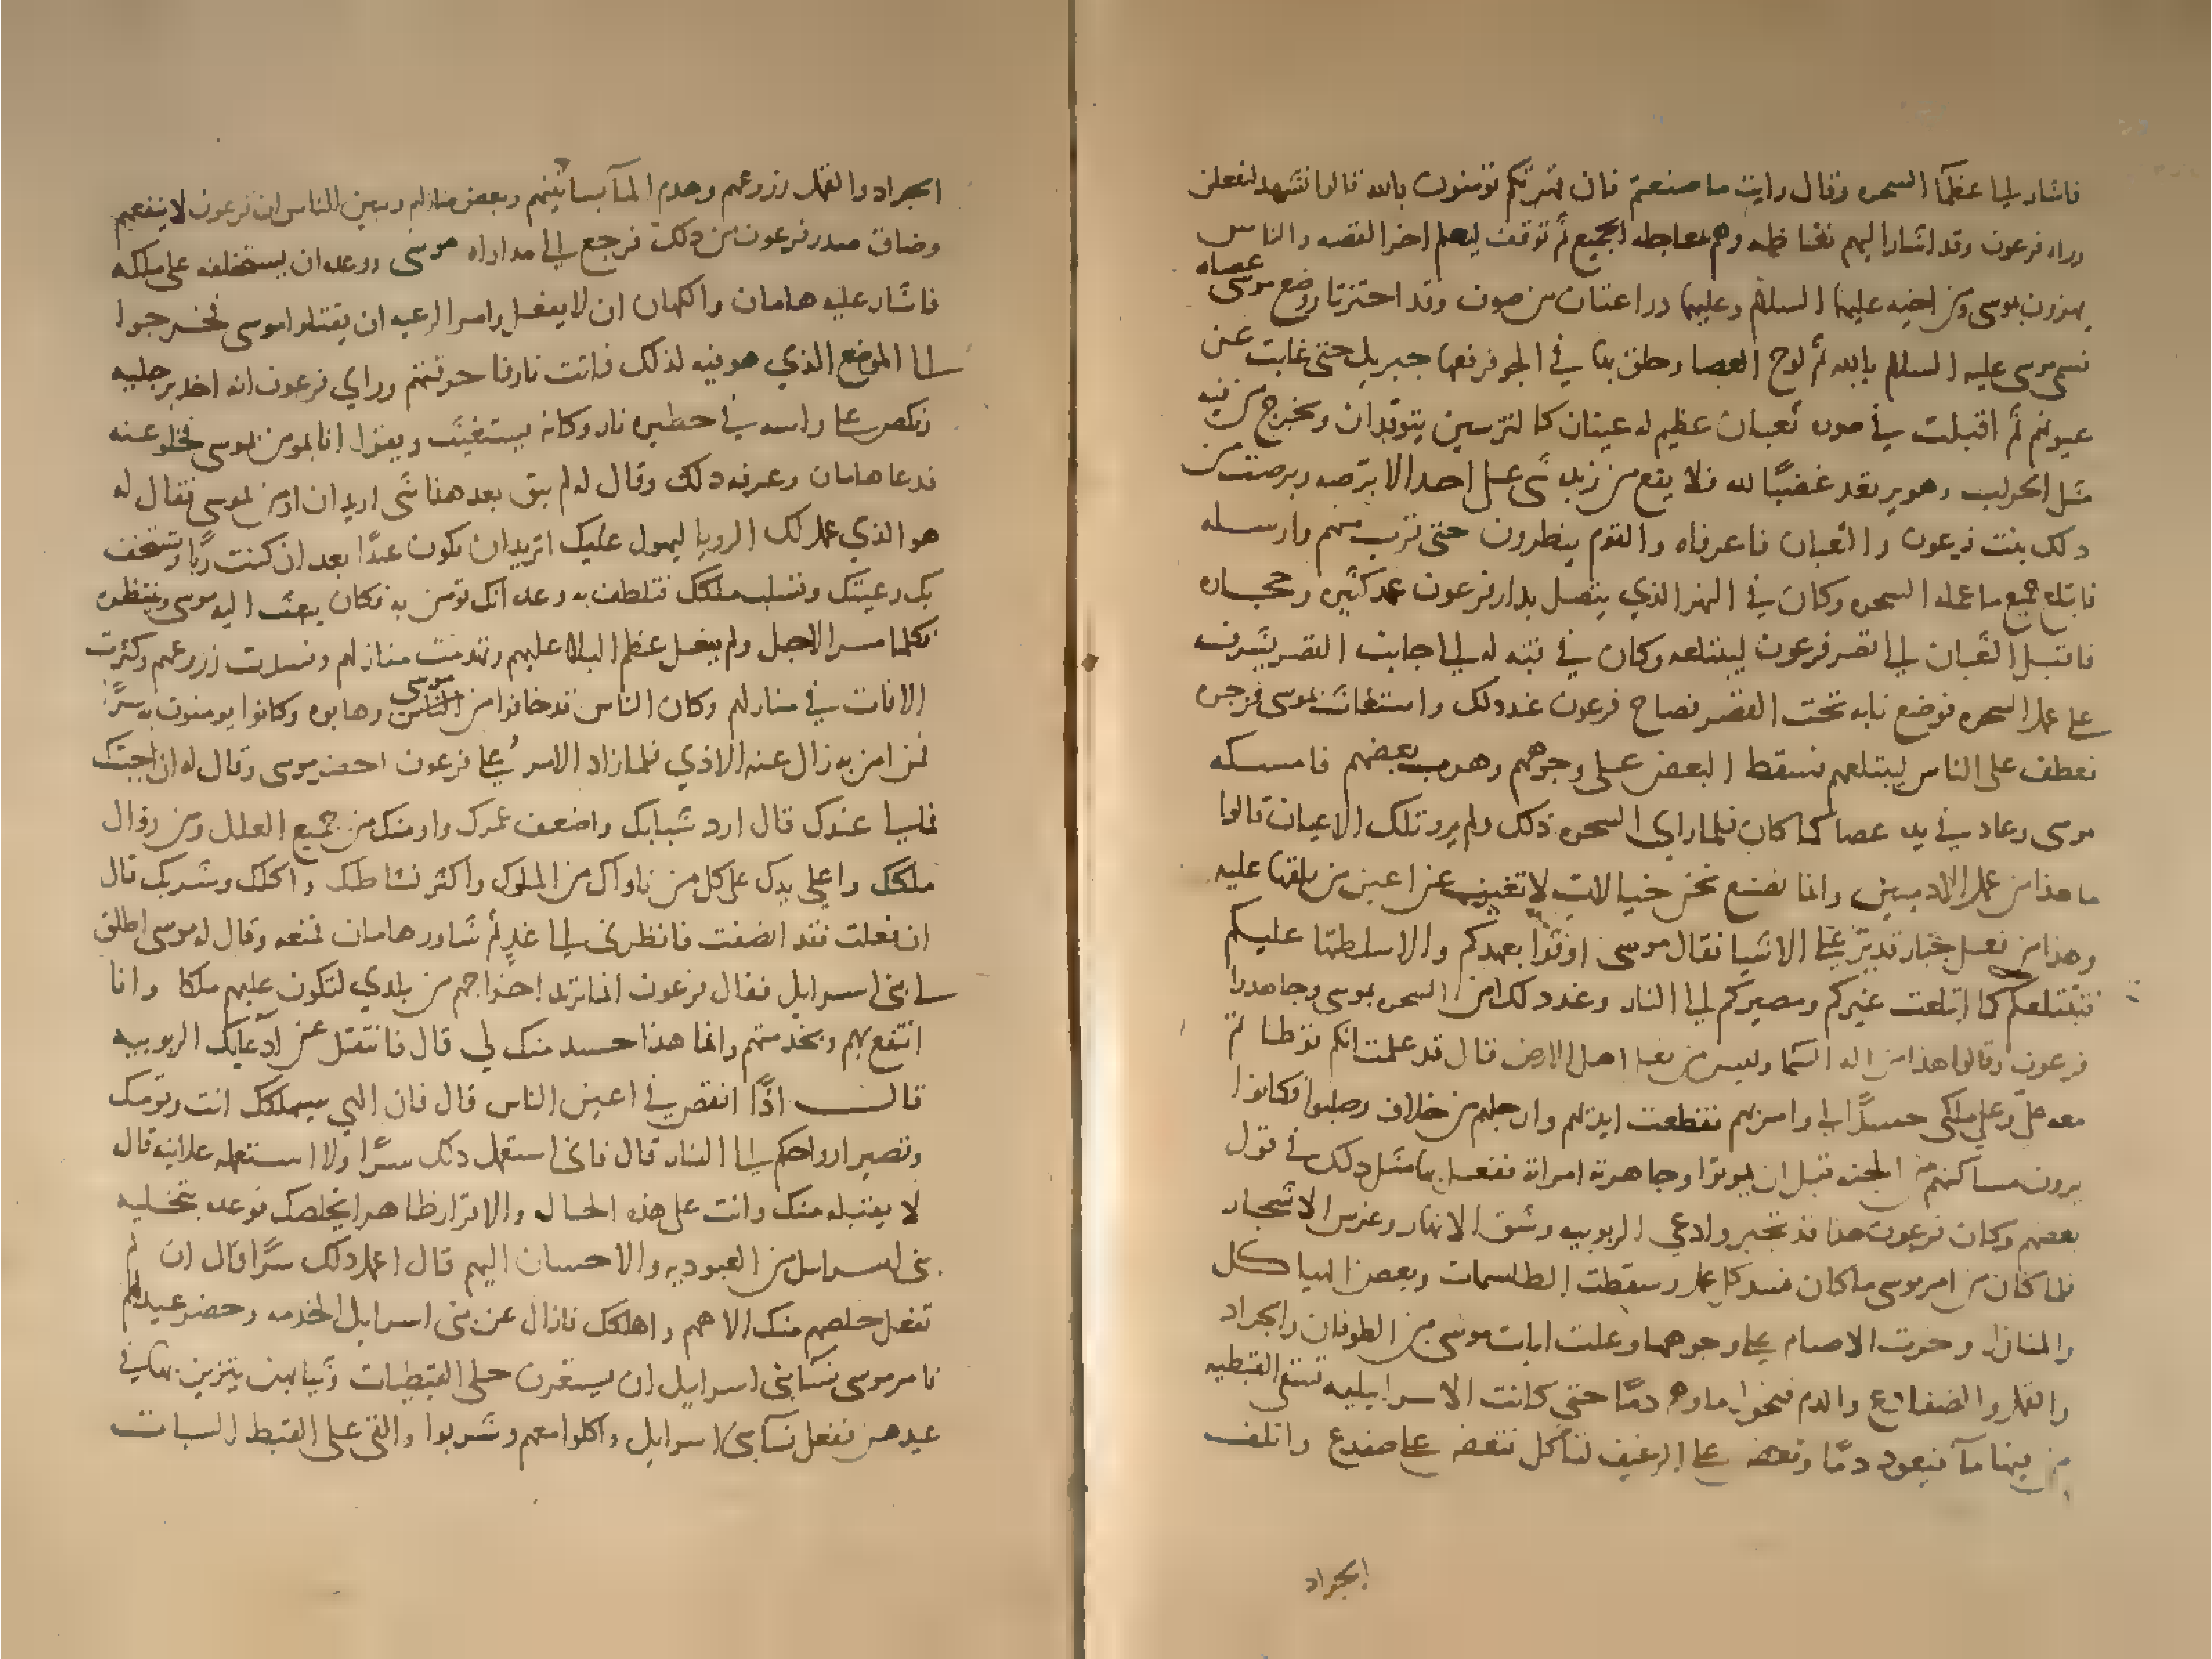 فاشار الى عظما السحره وقال رايت ما صنعتم فان قهرتكم تؤمنون بالله قالوا نشهد لنفعلن
وراه فرعون وقد اشار اليهم فغاظه وهم معاجله الجميع ثم توقف ليعلم اخر القصه والناس
يهزون بموسى ومن اخيه عليهما السلام وعليهما دراعتان من صوف وقد احتزتا ووضع موسى عصاه
فسمى موسى عليه السلام بالله ثم لوح العصا وحلق بها في الجو فرفعها جبريل حتى غابت عن
عيونهم ثم اقبلت في صوره ثعبان عظيم له عينان كالترسين يتوقدان ويخرج من فيه
مثل الحرلب وهو يرتعد غضبا لله فلا يقع من زبده شي على احد الا برصه وبرصت من
ذلك بنت فرعون والثعبان فاغر فاه والقوم ينظرون حتى قرب منهم وارسله
فابتلع جميع ما عمله السحره وكان في النهر الذي يتصل بدار فرعون عمد كثيره وحجاره
فاقبل الثعبان الى قصر فرعون ليبتلعه وكان في قبه له الى جانب القصر يشرف
على عمل السحره فوضع نابه تحت القصر فصاح فرعون عند ذلك واستغاث بموسى فزجره
فعطف على الناس ليبتلعهم فسقط البعض على وجوههم وهرب بعضهم فامسكه
موسى وعاد في يده عصا كما كان فلما راى السحره ذلك ولم يروا تلك الاعيان قالوا
ما هذا من عمل الادميين وانما نصنع نحن خيالات لا تغيب عن اعين من يلقها عليه
وهذا من فعل جبار قدير على الاشيا فقال موسى اوفوا بعهدكم والا سلطتها عليكم
فتبتلعكم كما ابتلعت غيركم ومصيركم الى النار وعند ذلك امن السحره بموسى وجاهدوا
فرعون وقالوا هذا من اله السما وليس من فعل اهل الارض قال قد علمت انكم تواطاتم
معه علي وعلى ملكي حسدا لي وامر بهم فقطعت ايديهم وارجلهم من خلاف وصلبوا فكانوا
يرون مساكنهم من الجنه قبل ان يموتوا وجاهرته امراته ففعل بها مثل ذلك في قول
بعضهم وكان فرعون هذا قد تجبر وادعى الربوبيه وشق الانهار وغرس الاشجار
فلما كان من امر موسى ما كان فسد كل عمل وسقطت الطلسمات وبعض الهياكل
والمنازل وخرت الاصنام على وجوهها وعلت ايات موسى من الطوفان والجراد
والقمل والضفادع والدم فتحول ماوهم دما حتى كانت الاسراييليه تسقى القبطيه
من فيها ما فيعود دما وتعض على الرغيف لتاكل فتعض على ضفدع واتلف
الجراد
الجراد والقمل زروعهم وهدم الما بساتينهم وبعض منازلهم وتبين للناس ان فرعون لا ينفعهم
وضاق صدر فرعون من ذلك فرجع الى مداراه موسى ووعده ان يستخلفه على ملكه
فاشار عليه هامان والكهان ان لا يفعل وامر الرعيه ان يقتلوا موسى فخرجوا
الى الموضع الذي هو فيه لذلك فاتت نار فاحرقتهم وراى فرعون انه اخذ برجليه
ونكص على راسه في حطيره نار وكانه يستغيث ويقول انا اومن بموسى فخلوا عنه
فدعا هامان وعرفه ذلك وقال له لم يبق بعد هذا شي اريد ان اومن بموسى فقال له
هو الذي عمل لك الرويا ليهول عليك اتريد ان تكون عبدا بعد ان كنت ربا وتستخف
بك رعيتك وتسلب ملكك فتلطف به وعده انك تومن به فكان يبعث اليه موسى وينتظره
فكلما مر الاجل ولم يفعل عظم البلا عليهم وتهدمت منازلهم وفسدت زروعهم وكثرت
الافات في منازلهم وكان الناس قد خافوا من موسى وهابوه وكانوا يومنون به سرا
فمن امن به زال عنه الاذي فلما زاد الامر على فرعون احضر موسى وقال له ان اجبتك
فما لي عندك قال ارد شبابك واضعف عمرك وارمنك من جميع العلل ومن زوال
ملكك واعلي يدك على كل من ناواك من الملوك واكثر نشاطك واكلك وشربك قال
ان فعلت فقد انصفت فانظرني الى غد ثم شاور هامان فمنعه وقال له موسى اطلق
لي بني اسرايل فقال فرعون انما تريد اخراجهم من بلدي لتكون عليهم ملكا وانا
انتفع بهم وبخدمتهم وانما هذا حسد منك لي قال فانتقل عن ادعايك الربوبيه
قال اذا انقص في اعين الناس قال فان الهي سيهلكك انت وقومك
وتصير ارواحكم الى النار قال فاني استعمل ذلك سرا ولا استعمله علانيه قال
لا يقبله منك وانت على هذه الحال والاقرار ظاهرا يخلصك فوعده بتخليه
بني اسرايل من العبوديه والاحسان اليهم قال اعمل ذلك سرا قال ان لم
تفعل خلصهم منك الاههم واهلكك فازال عن بني اسرايل الخدمه وحضر عيد لهم
فامر موسى نسا بني اسرايل ان يستعرن حلي القبطيات وثيابهن يتزين بها في
عيدهن ففعل نسا بني اسرايل واكلوا معهم وشربوا والقي على القبط السبات